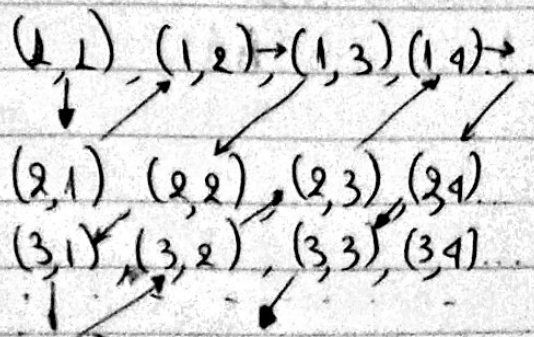 (1,1), (1,2)→(1,3),(1,4)→...
(2,1) (2,2), (2,3), (2,4)...
(3,1), (3,2), (3,3), (3,4)...